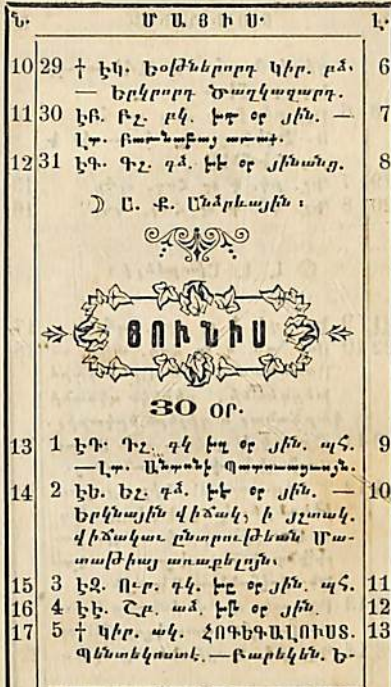 Ն. ՄԱՅԻՍ. Լ.
10 29 † ԷԿ. Եօթներորդ Կիր. բձ. 6
— Երկրորդ Ծաղկազարդ.
11 30 ԷԲ. Բշ. բկ. օր յին. — 7
Լւ. Բառնաբայ առաք.
12 31 ԷԳ. Գշ. գձ. օր յինանց. 8
☽ Ա. Ք. Անձրևային ։
ՅՈՒՆԻՍ
30 ՕՐ.
13 1 ԷԴ. Դշ. գկ օր յին. պՀ. 9
—Լւ. Անտոնի
14 2 ԷԵ. Եշ. դձ. օր յին. — 10
Երկնային վիճակ, ի յշտակ.
վիճակաւ ընտրութեան Մա-
տաթիայ առաքելոյն.
15 3 ԷԶ. Ուր. դկ. օր յին. պՀ. 11
16 4 ԷԷ. Շբ. աձ. օր յին. 12
17 5 † Կիր. ակ. ՀՈԳԵԳԱԼՈՒՍՏ. 13
Պենտեկոստէ. — Բարեկեն. Ե-